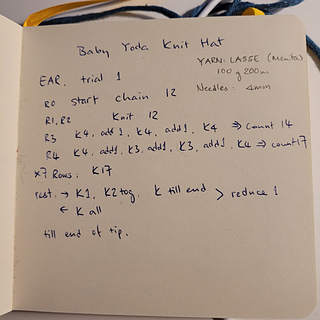 Baby Yoda Knit Hat
YARN: LASSE (Menta)
100 g 200m
Needles: 4mm
EAR. trial 1
R0 start chain 12
R1, R2 Knit 12
R3 K4, add 1, K4, add 1, K4 ⇒ count 14
R4 K4, add 1, K3, add 1, K3, add 1, K4 ⇒ count 17
x7 Rows: K17
rest. → K1, K2tog, K till end > reduce 1
← K all
till end of tip.